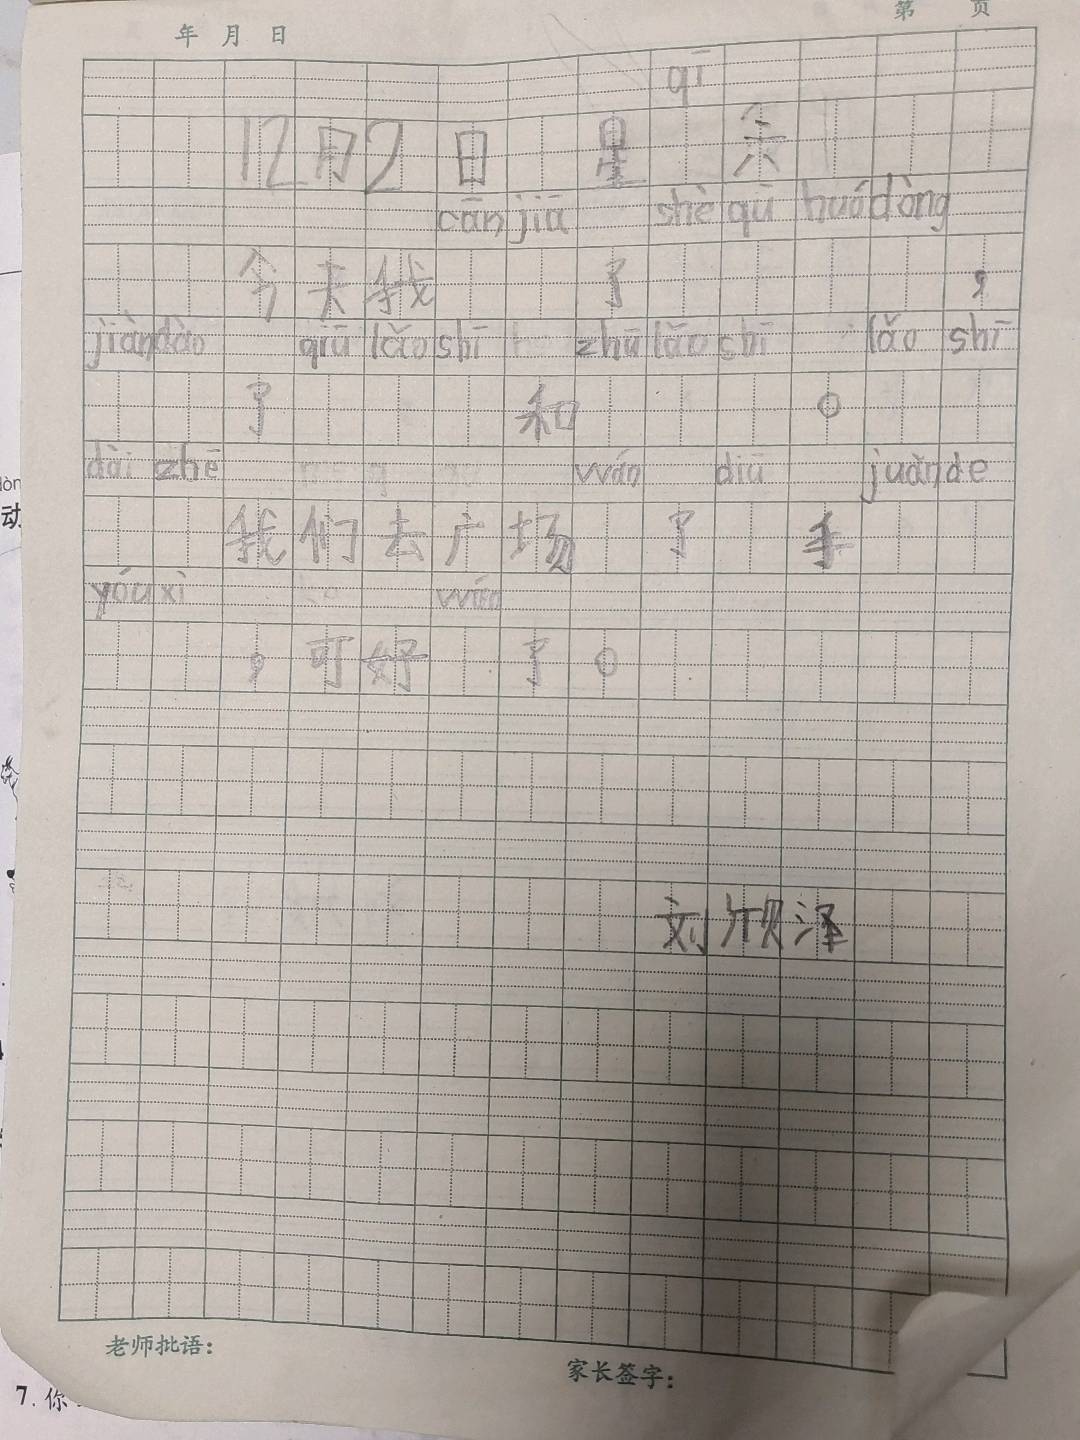 年 月 日
第 页
qī
12月2日 星 六
cān jiā shè qū huó dòng
今天我 了 ，
jiàn dào qiū lǎo shī zhū lǎo shī lǎo shī
了 和 。
dài zhē wán diū juàn de
我们去广场 了 手
yóu xì wán
，可好 了。
刘欣泽
老师批语：
家长签字：
动
7. 你